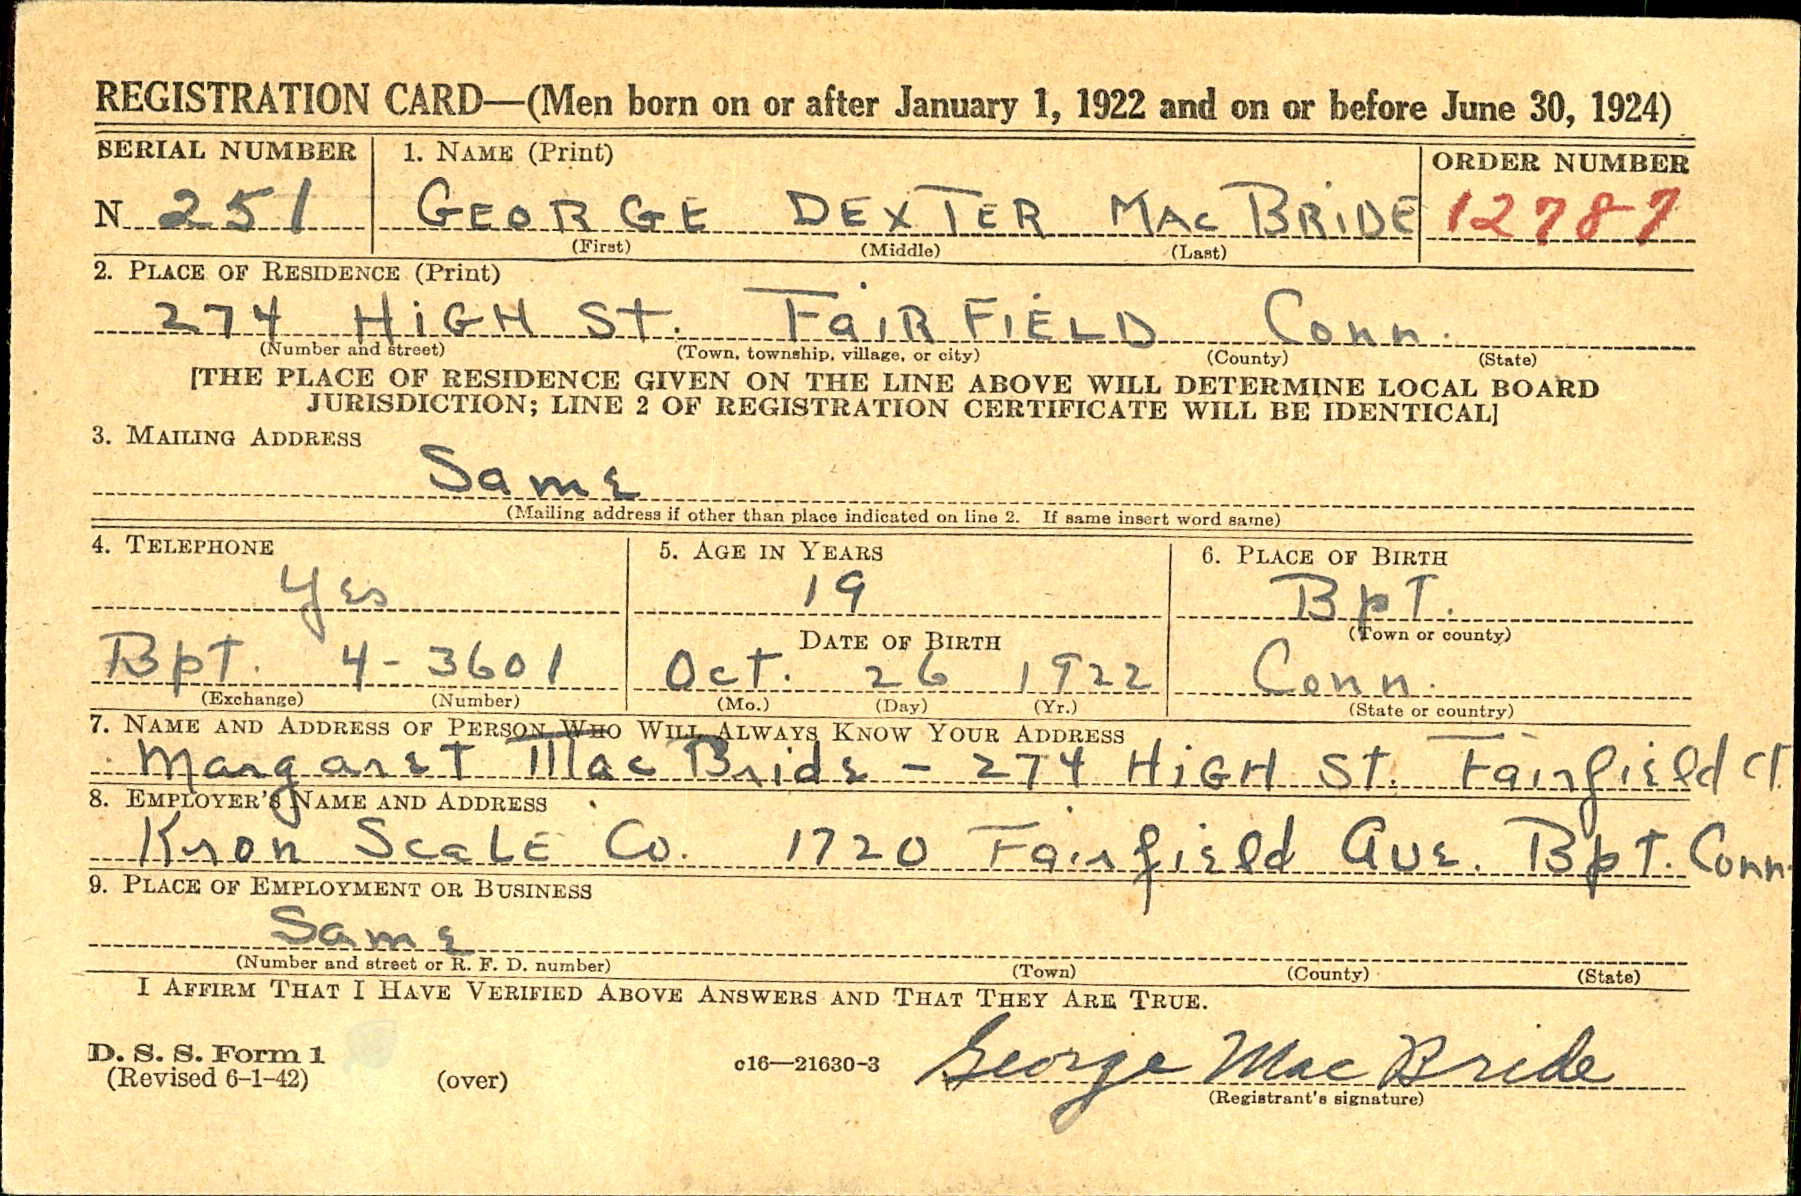 REGISTRATION CARD—(Men born on or after January 1, 1922 and on or before June 30, 1924)
SERIAL NUMBER 1. NAME (Print) ORDER NUMBER
N 251 GEORGE DEXTER MAC BRIDE 12787
(First) (Middle) (Last)
2. PLACE OF RESIDENCE (Print)
274 HiGH St. FaiRFiELD Conn.
(Number and street) (Town, township, village, or city) (County) (State)
[THE PLACE OF RESIDENCE GIVEN ON THE LINE ABOVE WILL DETERMINE LOCAL BOARD
JURISDICTION; LINE 2 OF REGISTRATION CERTIFICATE WILL BE IDENTICAL]
3. MAILING ADDRESS
Same
(Mailing address if other than place indicated on line 2. If same insert word same)
4. TELEPHONE 5. AGE IN YEARS 6. PLACE OF BIRTH
Yes 19 BpT.
(Town or county)
DATE OF BIRTH
BpT. 4-3601 Oct. 26 1922 Conn.
(Exchange) (Number) (Mo.) (Day) (Yr.) (State or country)
7. NAME AND ADDRESS OF PERSON WHO WILL ALWAYS KNOW YOUR ADDRESS
Margaret MacBride - 274 HiGH St. Fairfield Ct.
8. EMPLOYER'S NAME AND ADDRESS
Kron Scale Co. 1720 Fairfield Ave. BpT. Conn.
9. PLACE OF EMPLOYMENT OR BUSINESS
Same
(Number and street or R. F. D. number) (Town) (County) (State)
I AFFIRM THAT I HAVE VERIFIED ABOVE ANSWERS AND THAT THEY ARE TRUE.
D. S. S. Form 1
(Revised 6-1-42) (over) c16—21630-3 George Mac Bride
(Registrant's signature)